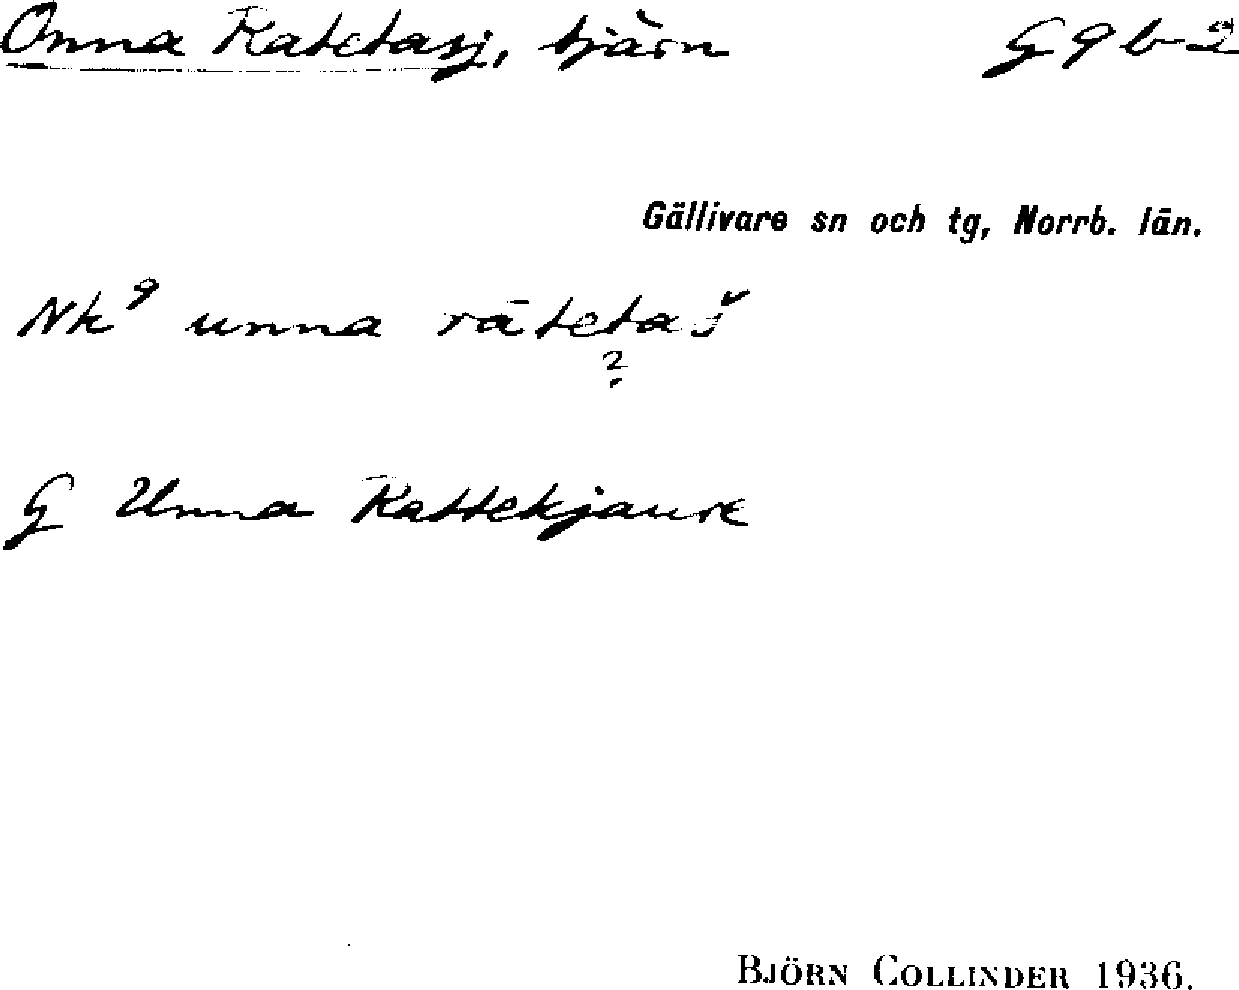 Onna Ratetasj, tjärn G 9 b 2
Gällivare sn och tg, Norrb. län.
Nk⁹ unna rātetaš
?
G Unna Rattekjaure
BJÖRN COLLINDER 1936.